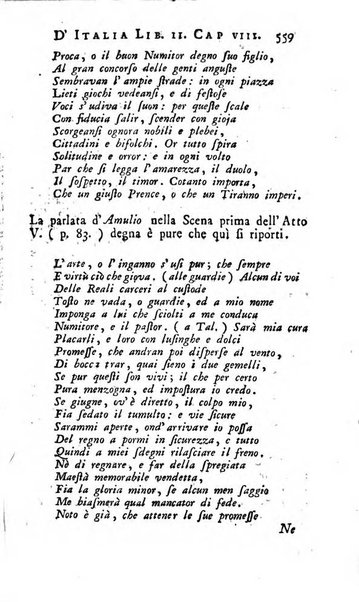 D' ITALIA LIB. II. CAP VIII. 559
Proca, o il buon Numitor degno suo figlio,
Al gran concorso delle genti anguste
Sembravan l' ampie strade: in ogni piazza
Lieti giochi vedeansi, e di festose
Voci s'udiva il suon: per queste scale
Con fiducia salir, scender con gioja
Scorgeansi ognora nobili e plebei,
Cittadini e bifolchi. Or tutto spira
Solitudine e orror: e in ogni volto
Par che si legga l'amarezza, il duolo,
Il sospetto, il timor. Cotanto importa,
Che un giusto Prence, o che un Tiranno imperi.
La parlata d' Amulio nella Scena prima dell' Atto
V. ( p. 83. ) degna è pure che quì si riporti.
L'arte, o l' inganno s'usi pur; che sempre
E virtù ciò che giova. ( alle guardie ) Alcun di voi
Delle Reali carceri al custode
Tosto ne vada, o guardie, ed a mio nome
Imponga a lui che sciolti a me conduca
Numitore, e il pastor. ( a Tal. ) Sarà mia cura
Placarli, e loro con lusinghe e dolci
Promesse, che andran poi disperse al vento,
Di bocca trar, quai sieno i due gemelli,
Se pur questi son vivi; il che per certo
Pura menzogna, ed impostura io credo.
Se giugne, ov'è diretto, il colpo mio,
Fia sedato il tumulto: e vie sicure
Sarammi aperte, ond' arrivare io possa
Del regno a pormi in sicurezza, e tutto
Quindi a miei sdegni rilasciare il freno.
Nè di regnare, e far della spregiata
Maestà memorabile vendetta,
Fia la gloria minor, se alcun men saggio
Me biasmerà qual mancator di fede.
Noto è già, che attener le sue promesse
Ne